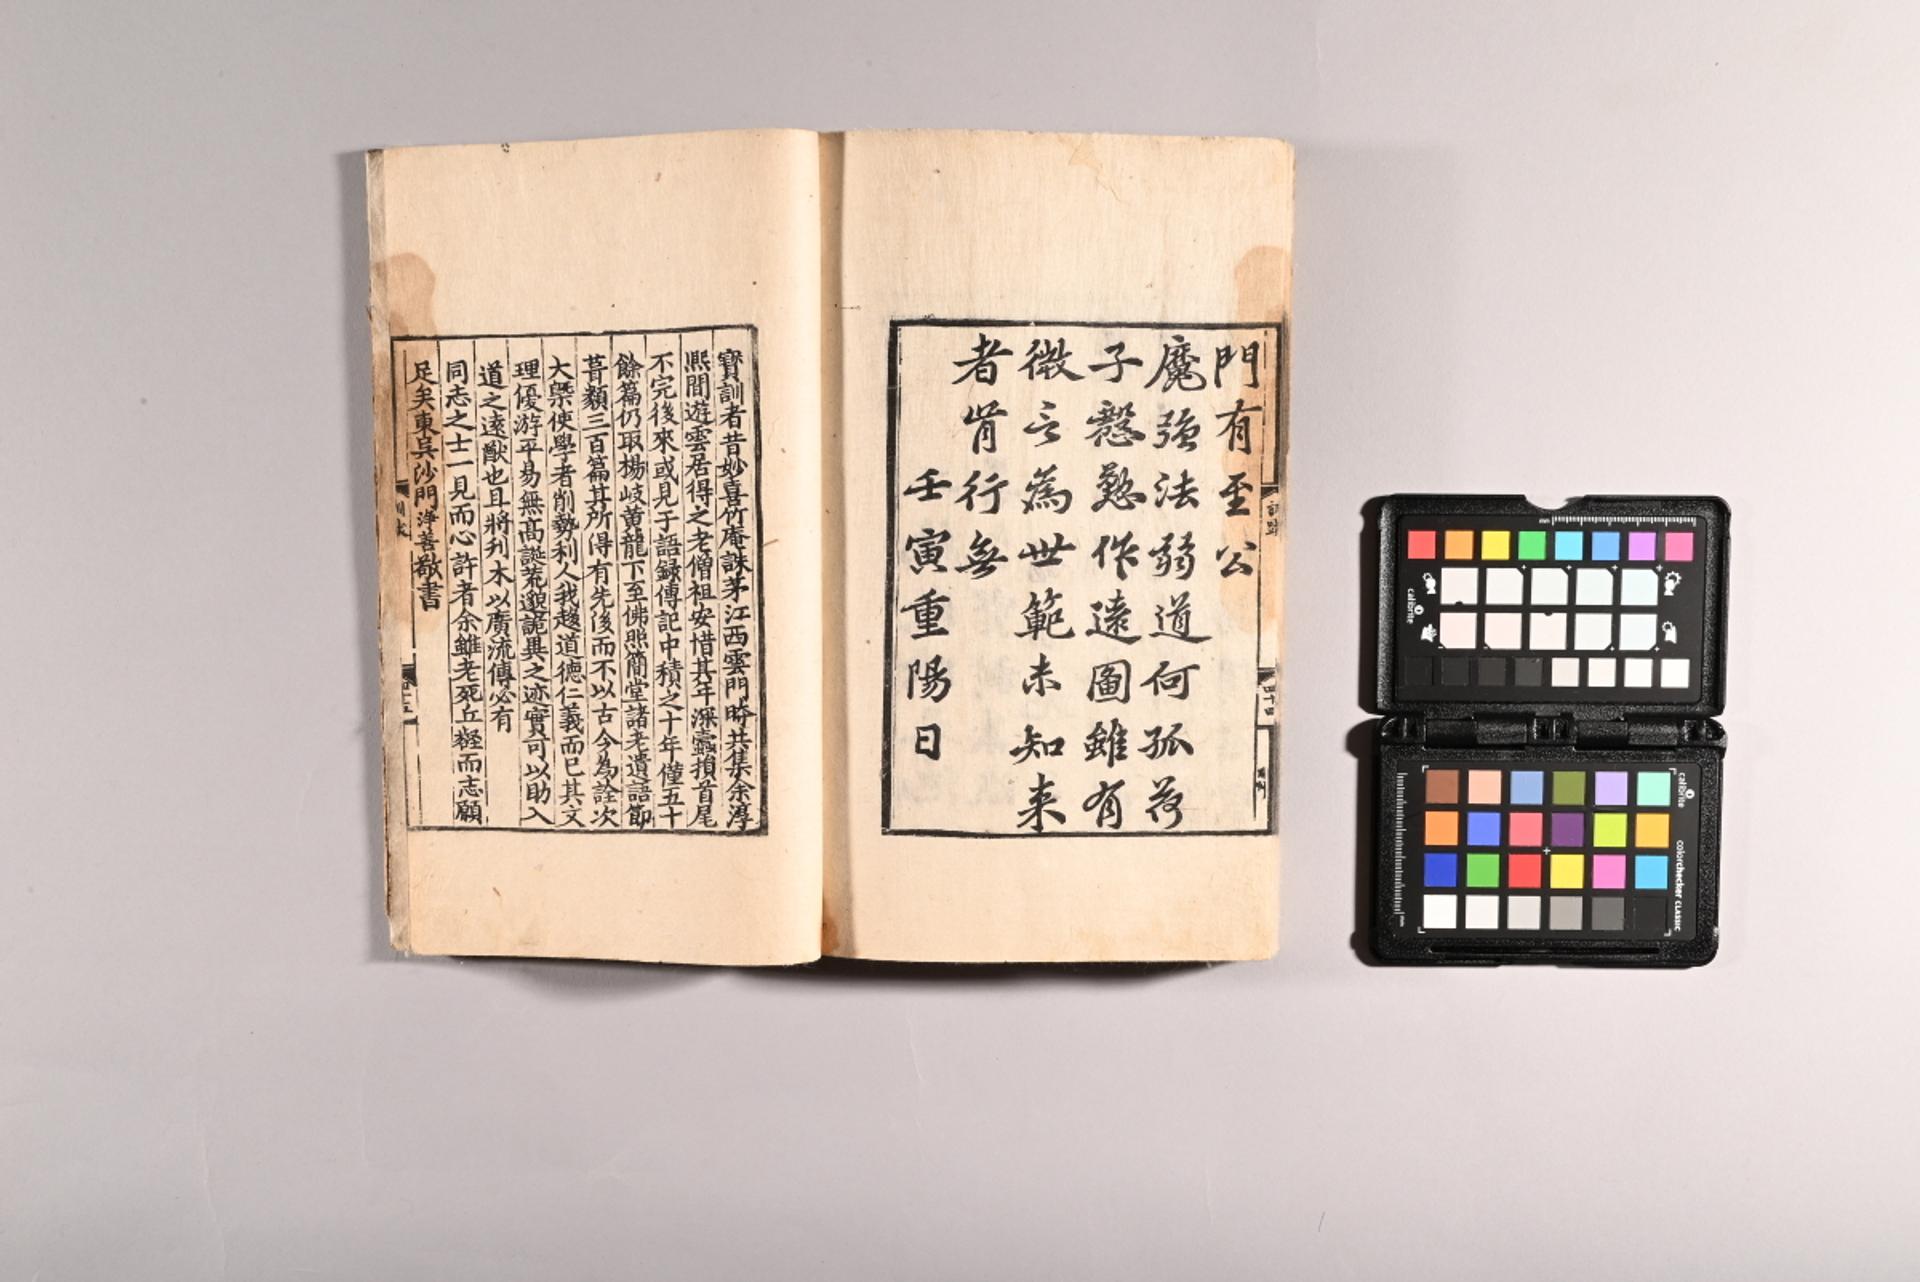 門有至公
魔強法弱道何孤荷
子慇懃作遠圖雖有
徴言為世範未知来
者肯行無
壬寅重陽日
寶訓者昔妙喜竹庵誅茅江西雲門時共集余淳
熈間遊雲居得之老僧祖安惜其年深蠹損首尾
不完後來或見于語録傳記中積之十年僅五十
餘篇仍取楊岐黄龍下至佛照簡堂諸老遺語節
葺類三百篇其所得有先後而不以古今為詮次
大槩使學者削勢利人我趍道德仁義而已其文
理優游平易無高誕荒邈詭異之迹實可以助入
道之遠猷也且將刋木以廣流傳必有
同志之士一見而心許者余雖老死丘壑而志願
足矣東呉沙門淨善敬書
calibrite
calibrite
colorchecker CLASSIC
mm